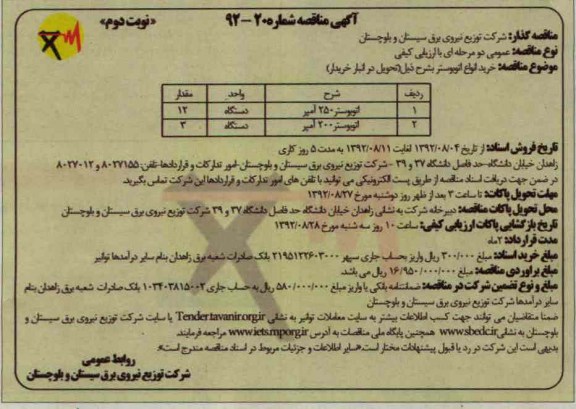 آگهی مناقصه شماره ۲۰ – ۹۲ «نوبت دوم»
مناقصه گذار: شرکت توزیع نیروی برق سیستان و بلوچستان
نوع مناقصه: عمومی دو مرحله ای با ارزیابی کیفی
موضوع مناقصه: خرید انواع اتوبوستر بشرح ذیل(تحویل در انبار خریدار)
ردیف شرح واحد مقدار
۱ اتوبوستر ۲۵۰ آمپر دستگاه ۱۲
۲ اتوبوستر ۲۰۰ آمپر دستگاه ۳
تاریخ فروش اسناد: از تاریخ ۱۳۹۲/۰۸/۰۴ لغایت ۱۳۹۲/۰۸/۱۱ به مدت ۵ روز کاری
زاهدان خیابان دانشگاه-حد فاصل دانشگاه ۳۷ و ۳۹ – شرکت توزیع نیروی برق سیستان و بلوچستان-امور تدارکات و قراردادها-تلفن: ۸۰۲۷۱۵۵ و ۸۰۲۷۰۱۲
در ضمن جهت دریافت اسناد مناقصه از طریق پست الکترونیکی می توانید با تلفن های امور تدارکات و قراردادها این شرکت تماس بگیرید.
مهلت تحویل پاکات: تا ساعت ۳ بعد از ظهر روز دوشنبه مورخ ۱۳۹۲/۰۸/۲۷
محل تحویل پاکات مناقصه: دبیرخانه شرکت به نشانی زاهدان خیابان دانشگاه حد فاصل دانشگاه ۳۷ و ۳۹ شرکت توزیع نیروی برق سیستان و بلوچستان
تاریخ بازگشایی پاکات ارزیابی کیفی: ساعت ۱۰ روز سه شنبه مورخ ۱۳۹۲/۰۸/۲۸
مدت قرارداد: ۲ماه
مبلغ خرید اسناد: مبلغ ۳۰۰/۰۰۰ ریال واریز بحساب جاری سپهر ۲۱۹۵۱۲۲۶۰۳۰۰۰ بانک صادرات شعبه برق زاهدان بنام سایر درآمدها توانیر
مبلغ برآوردی مناقصه: مبلغ ۱۶/۹۵۰/۰۰۰/۰۰۰ ریال می باشد.
مبلغ و نوع تضمین شرکت در مناقصه: ضمانتنامه بانکی یا واریز مبلغ ۵۸۰/۰۰۰/۰۰۰ ریال به حساب جاری ۱۰۳۴۰۳۸۱۵۰۰۲ بانک صادرات شعبه برق زاهدان بنام
سایر درآمدها شرکت توزیع نیروی برق سیستان و بلوچستان
ضمنا متقاضیان می توانند جهت کسب اطلاعات بیشتر به سایت معاملات توانیر به نشانی Tender.tavanir.org.ir یا سایت شرکت توزیع نیروی برق سیستان و
بلوچستان به نشانی www.sbedc.ir همچنین پایگاه ملی مناقصات به آدرس www.iets.mporg.ir مراجعه فرمایند.
بدیهی است این شرکت در رد یا قبول پیشنهادات مختار است.«سایر اطلاعات و جزئیات مربوط در اسناد مناقصه مندرج است»
روابط عمومی
شرکت توزیع نیروی برق سیستان و بلوچستان